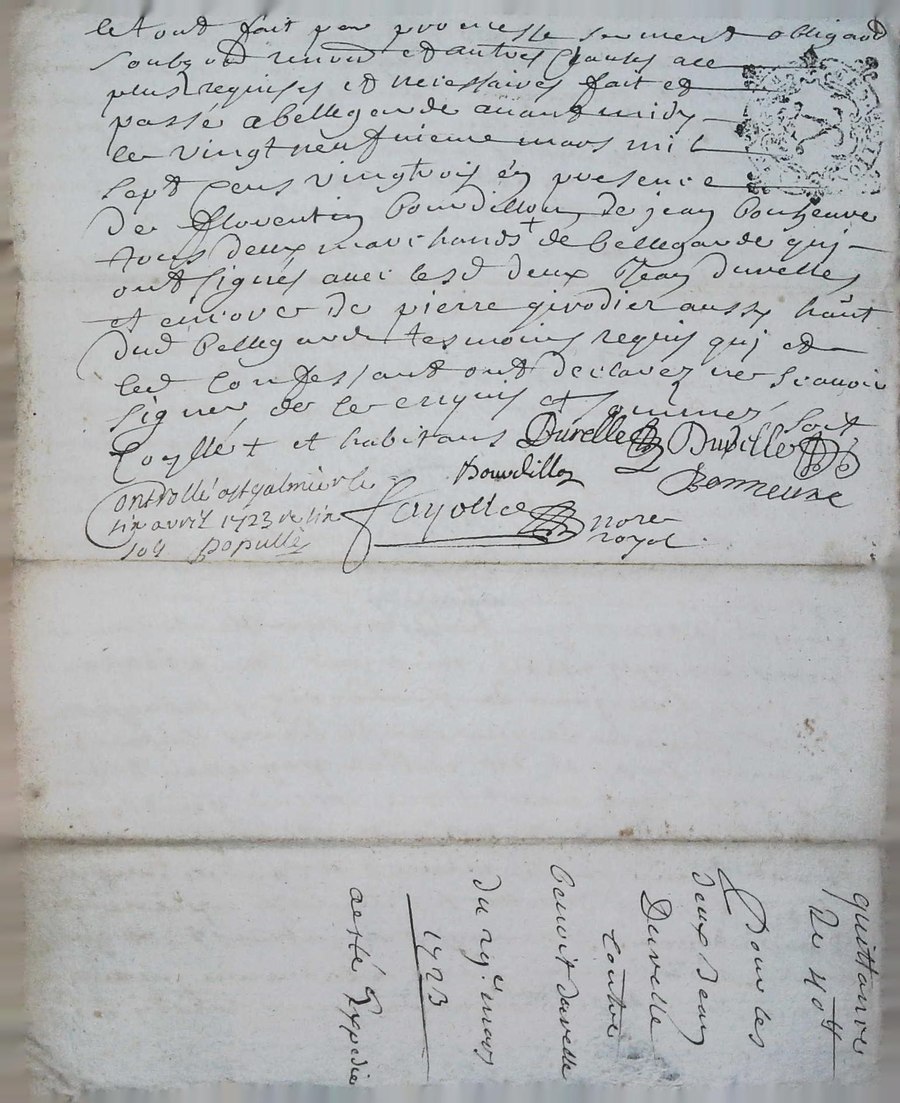 le tout fait par promesse serment obligaõn
soubqud renond et autres clauses
plus requises et necessaires fait et
passé a bellegarde avant midy
le vingt neufvieme mars mil
sept cens vingtrois én presence
de florentin bourdillon de jean bonheure
tous deux marchands de bellegarde qui
ont signés avec lesd deux Jean duvelles
et encore de pierre girodier aussy haũt
dud bellegarde tesmoins requis qui et
led confessant ont declarez ne scavoir
signer de ce enquis et sommés soit
et habitans Durelle Duvelle
Bourdillon Bonneure
Controllé a stgalmier le
six avril 1723 Fayolle nore
sols Populle royal
quittance
De 40lt
Pour les
deux Jean
Duvelle
Contre
benoit duvelle
du 29e mars
1723
a esté Expedie